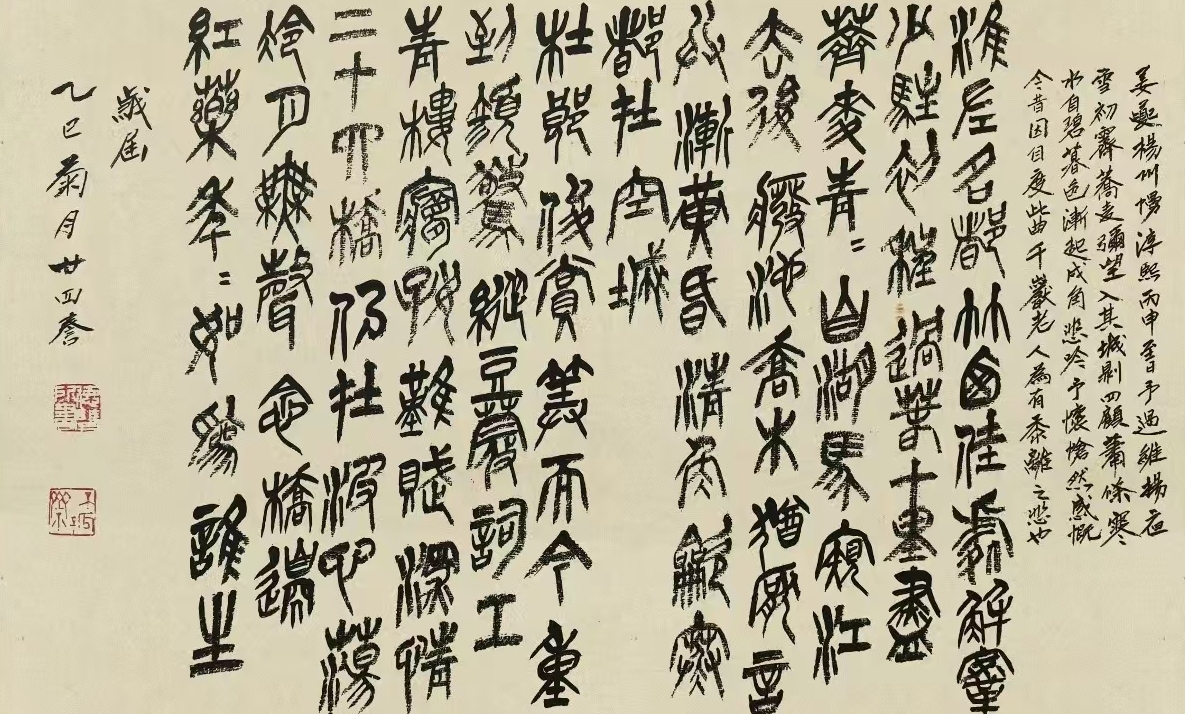 姜夔楊州慢淳熙丙申至日予過維揚夜
雪初霽薺麦彌望入其城則四顧蕭條寒
水自碧暮色漸起戍角悲吟予懷愴然感慨
今昔因自度此曲千巖老人為有黍離之悲也
淮左名都竹西佳處解鞍
少駐初程過春十里盡
薺麥青〻自湖馬窺江
去後廢池喬木猶厭言
兵漸黃昏清角龡寒
都在空城
杜郎俊賞算而今重
到須驚縱豆蔻詞工
青樓夢好難賦深情
二十四橋仍在波心蕩
冷月無聲念橋邊
紅藥年〻知為誰生
乙巳菊月廿四